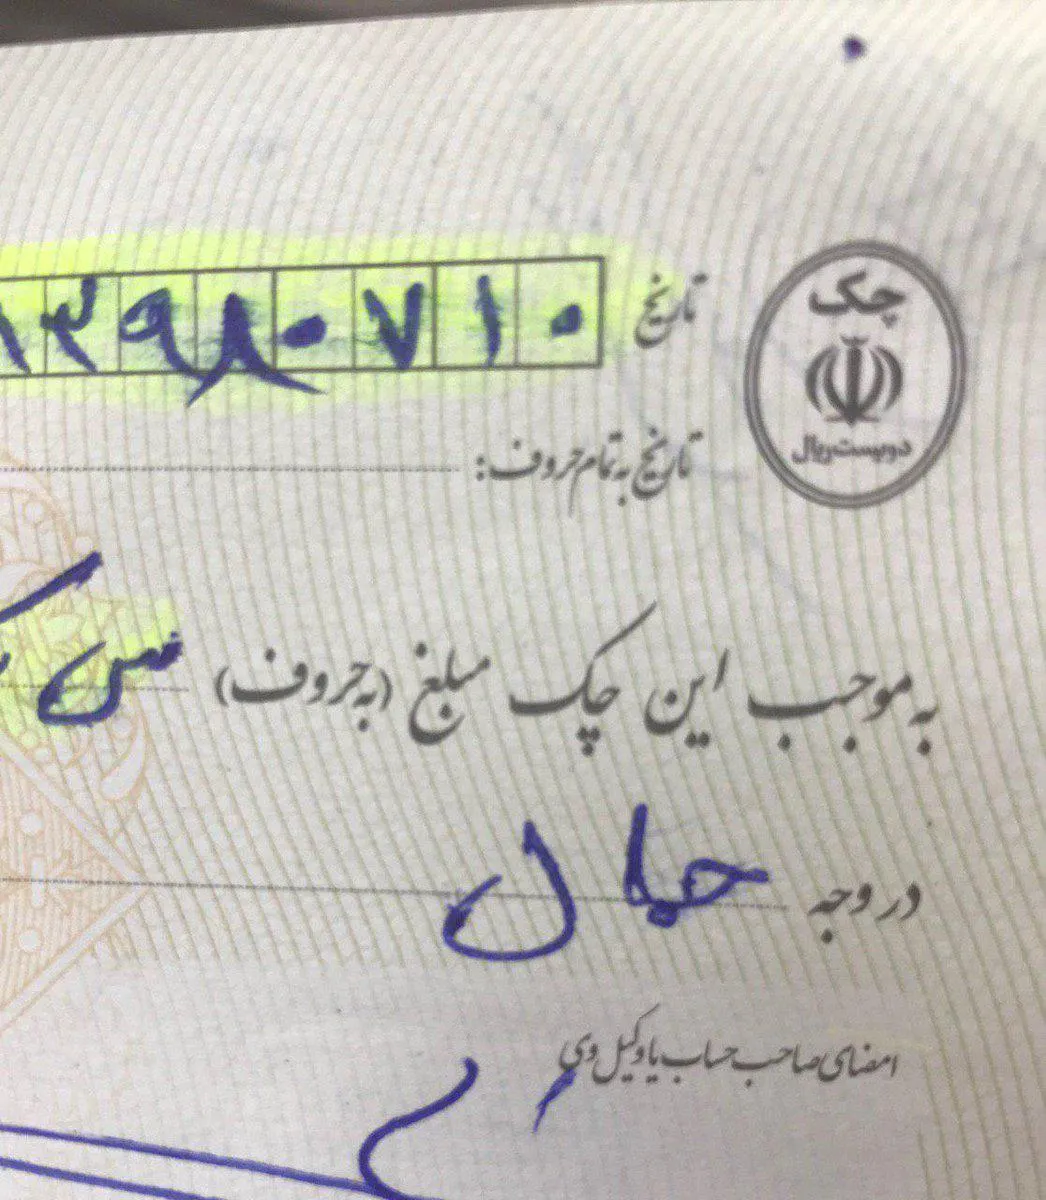 چک
دویست ریال
تاریخ ۱۳۹۸۰۷۱۰
تاریخ به تمام حروف:
به موجب این چک مبلغ (به حروف) سی
در وجه
امضای صاحب حساب یا وکیل وی